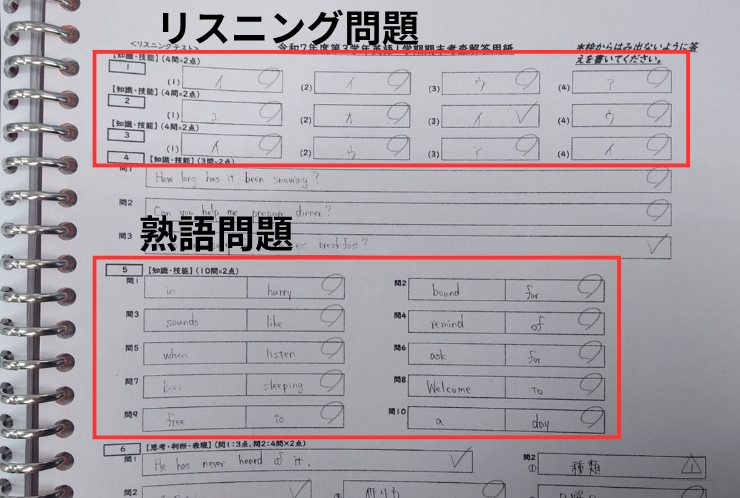 リスニング問題
<リスニングテスト>
令和7年度第3学年英語1学期期末考査解答用紙
※枠からはみ出ないように答えを書いてください。
【知識・技能】(4問×2点)
1
(1) イ (2) イ (3) ウ (4) ア
【知識・技能】(4問×2点)
2
(1) エ (2) オ (3) イ (4) ウ
【知識・技能】(4問×2点)
3
(1) イ (2) ウ (3) ア (4) イ
4 【知識・技能】(3問×2点)
問1 How long has it been snowing?
問2 Can you help me prepare dinner?
問3 breakfast?
熟語問題
5 【知識・技能】(10問×2点)
問1 in hurry 問2 bound for
問3 sounds like 問4 remind of
問5 when listen 問6 ask for
問7 sleeping 問8 Welcome to
問9 free to 問10 a day
6 【思考・判断・表現】(問1:3点、問2:4問×2点)
問1 He has never heard of it. 問2 ① 種類
問2